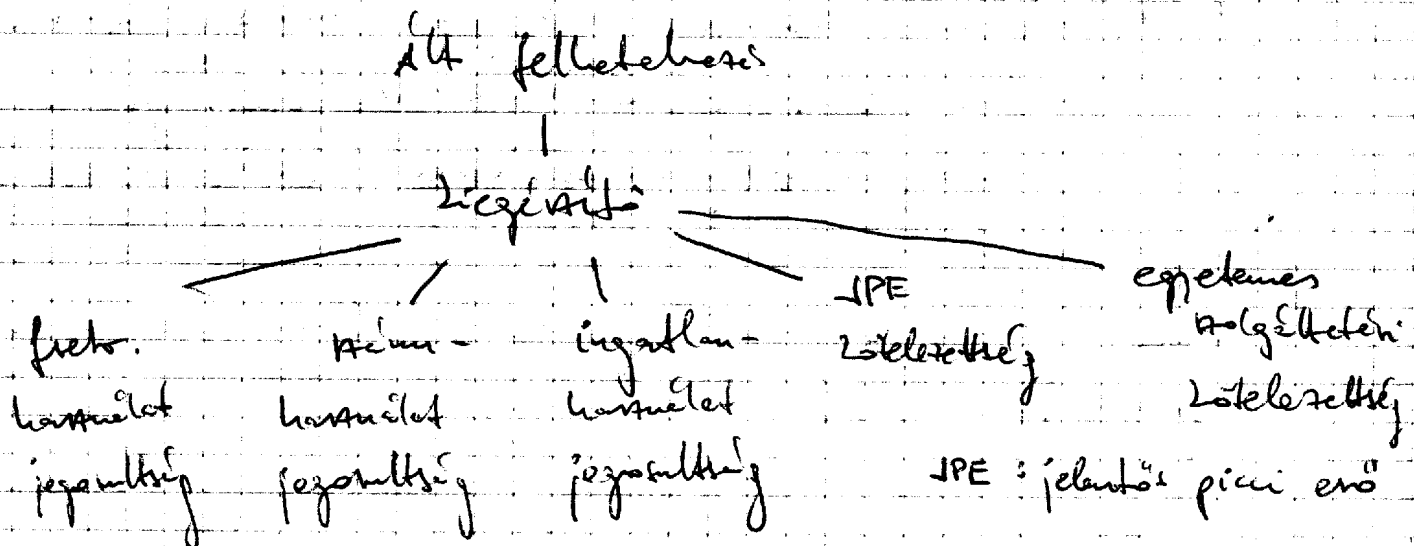 Ált felhatalmazás
|
kiegészítő
frekv. használat jogosultság
szám- használat jogosultság
ingatlan- használat jogosultság
JPE kötelezettség
egyetemes szolgáltatási kötelezettség
JPE : jelentős piaci erő